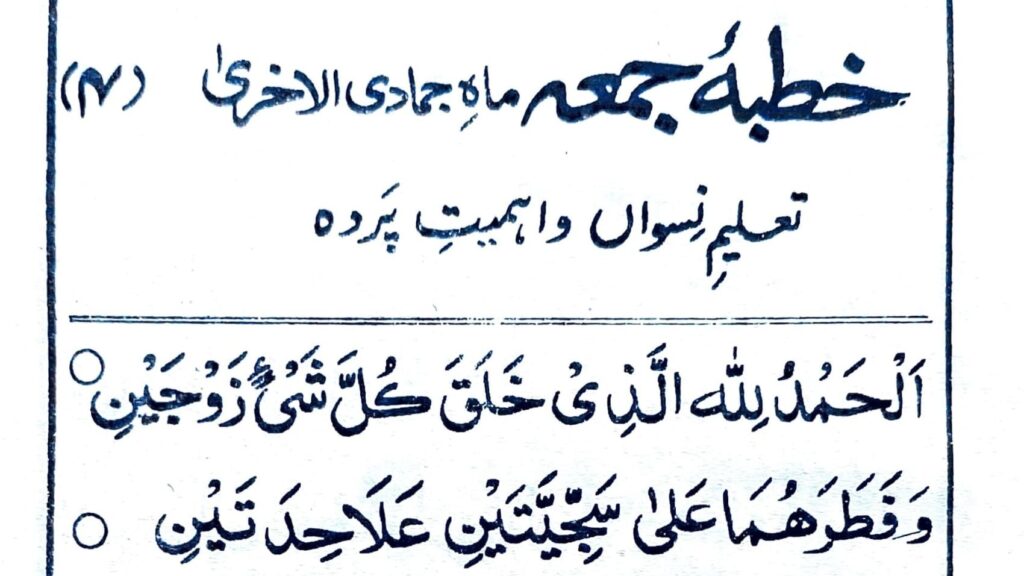 خطبۂ جمعہ ماہِ جمادی الاخریٰ (۴)
تعلیمِ نِسواں و اہمیتِ پَردہ
اَلْحَمْدُ لِلّٰہِ الَّذِیْ خَلَقَ کُلَّ شَیْءٍ زَوْجَیْنِ ○
وَفَطَرَھُمَا عَلیٰ سَجِّیَّتَیْنِ عَلَاحِدَتَیْنِ ○